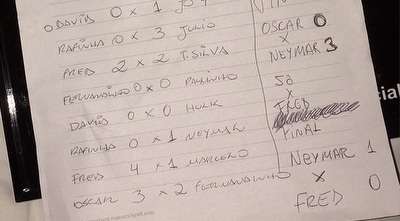 DAVID 0 X 1 JÔ
RAFINHA 0 X 3 JULIO
FRED 2 X 2 T. SILVA
FERNANDINHO 0 X 0 PAULINHO
DAVID 0 X 0 HULK
RAFINHA 0 X 1 NEYMAR
FRED 4 X 1 MARCELO
OSCAR 3 X 2 FERNANDINHO
OSCAR 0
X
NEYMAR 3
JÔ
X
FRED
FINAL
NEYMAR 1
X
FRED 0